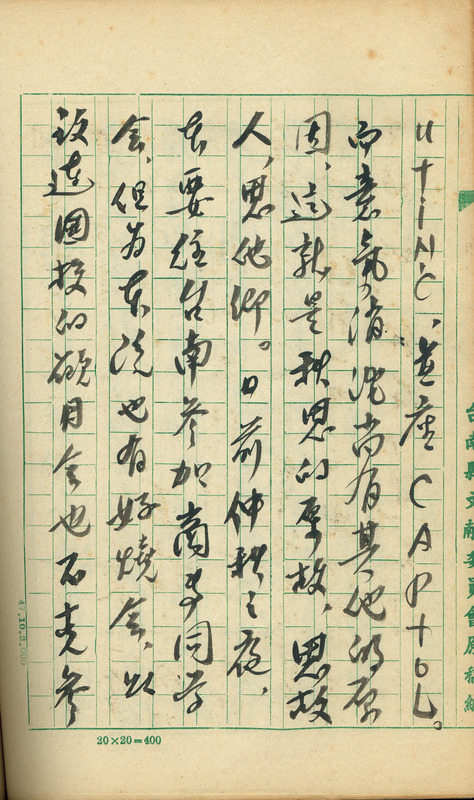 台南縣文獻委員會原稿紙
UTiNC、並産CAPtoL。
而意氣消沈尚有其他的原
因、這就是秋思的原故、思故
人、思他鄉。日前仲秋之夜、
本要往台南參加商專同学
会、但為本院也有好燒会、以
致連國校的觀月会也不克參
47.10.2,000
20×20=400